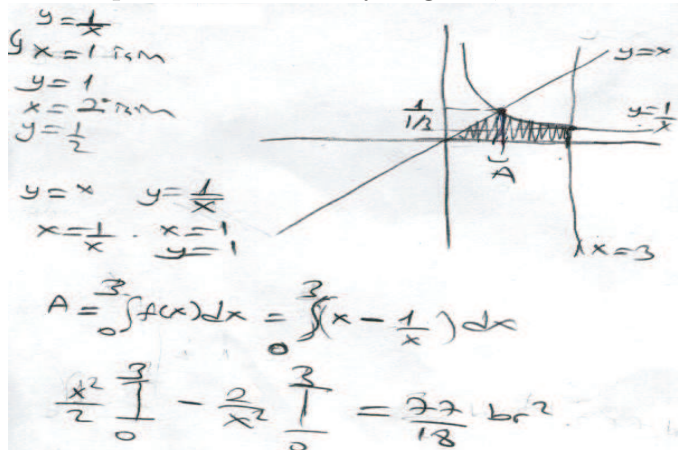 y = 1/x
x = 1 ism
y = 1
x = 2 ism
y = 1/2
y = x y = 1/x
x = 1/x . x = 1
y = 1
y = x
y = 1/x
1
1/3
A
x = 3
A = ₀∫³ f(x) dx = ₀∫³ (x - 1/x) dx
x²/2 |₀³ - 2/x² |₀³ = 77/18 br²